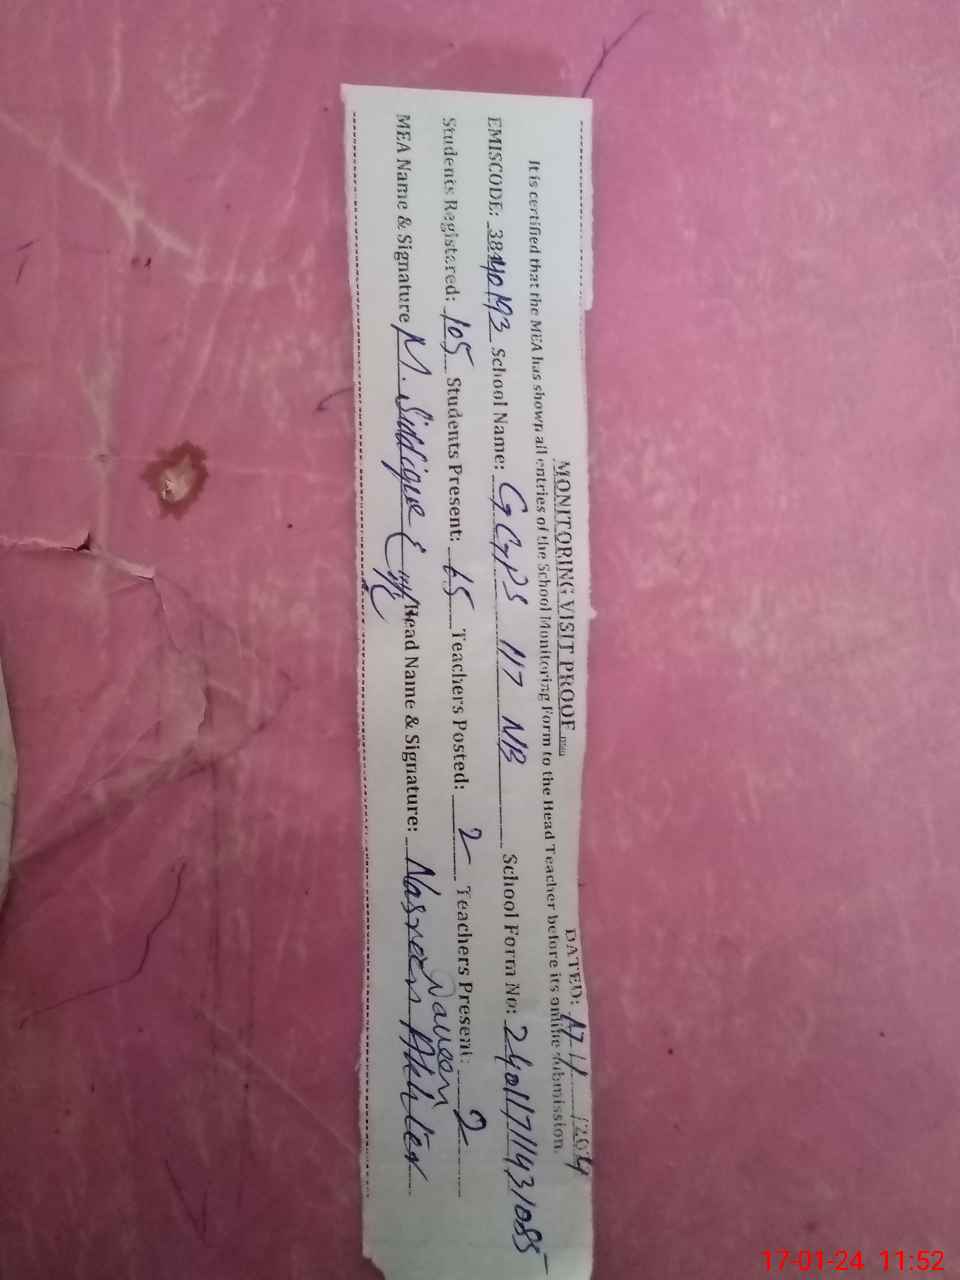 MONITORING VISIT PROOF
DATED: 17-1/2024
It is certified that the MEA has shown all entries of the School Monitoring Form to the Head Teacher before its online submission.
EMISCODE: 38440193 School Name: GGPS 117 NB School Form No: 2401171193/085
Students Registered: 105 Students Present: 65 Teachers Posted: 2 Teachers Present: 2
MEA Name & Signature M. Siddique Head Name & Signature: Nasreen Akhter
Naveen
17-01-24 11:52